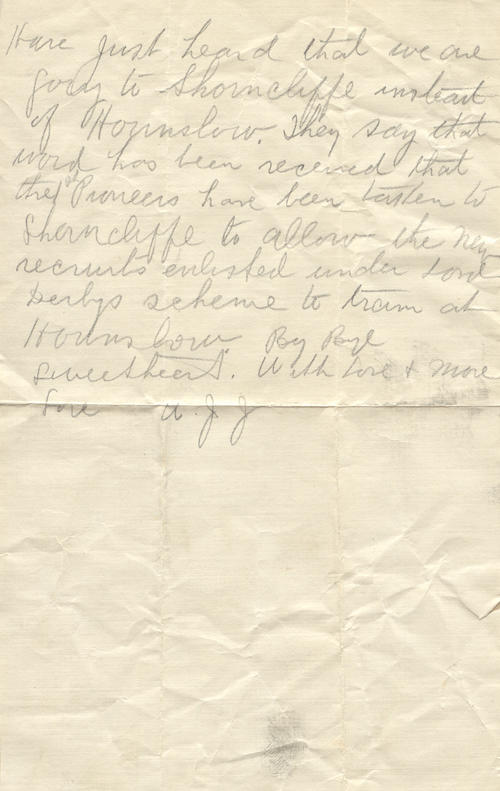 Have just heard that we are
going to Shorncliffe instead
of Hounslow. They say that
word has been received that
the Pioneers have been taken to
Shorncliffe to allow the new
recruits enlisted under Lord
Derbys scheme to train at
Hounslow. By Bye
sweetheart. With Love & More
Love